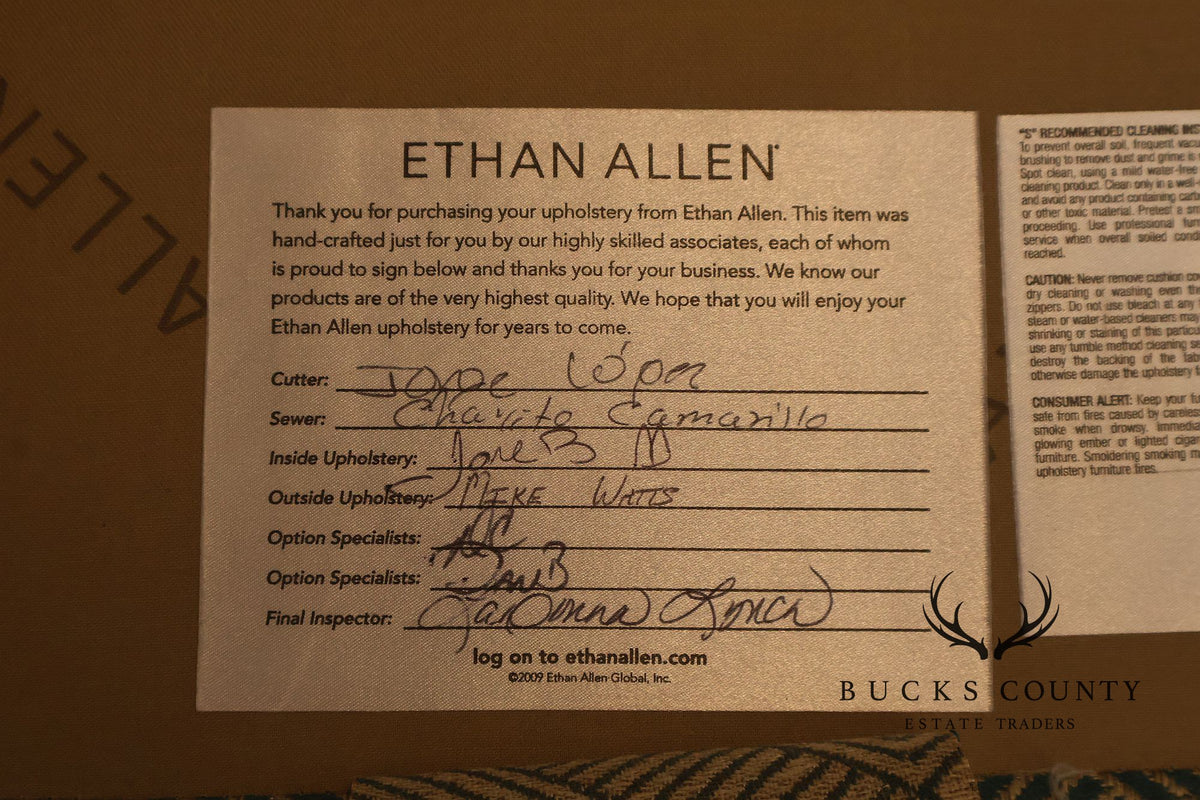 ALLEN
ETHAN ALLEN
Thank you for purchasing your upholstery from Ethan Allen. This item was
hand-crafted just for you by our highly skilled associates, each of whom
is proud to sign below and thanks you for your business. We know our
products are of the very highest quality. We hope that you will enjoy your
Ethan Allen upholstery for years to come.
Cutter: Jorge López
Sewer: Charito Camarillo
Inside Upholstery: Jose B
Outside Upholstery: MIKE WATTS
Option Specialists:
Option Specialists: DAN B
Final Inspector: LaDonna Lynch
log on to ethanallen.com
©2009 Ethan Allen Global, Inc.
"S" RECOMMENDED CLEANING INST
To prevent overall soil, frequent vacu
brushing to remove dust and grime is
Spot clean, using a mild water-free
cleaning product. Clean only in a well
and avoid any product containing carb
or other toxic material. Pretest a sm
proceeding. Use professional furn
service when overall soiled condi
reached.
CAUTION: Never remove cushion co
dry cleaning or washing even tho
zippers. Do not use bleach at any
steam or water-based cleaners may
shrinking or staining of this particu
use any tumble method cleaning se
destroy the backing of the fab
otherwise damage the upholstery f
CONSUMER ALERT: Keep your fu
safe from fires caused by careles
smoke when drowsy. Immedia
glowing ember or lighted cigar
furniture. Smoldering smoking m
upholstery furniture fires.
BUCKS COUNTY
ESTATE TRADERS